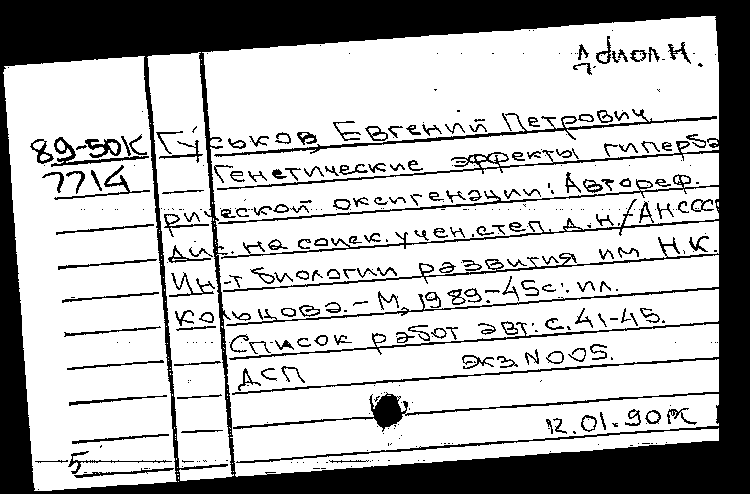 Д биол. н.
89-50К Гуськов Евгений Петрович
7714 Генетические эффекты гиперба
рической оксигенации: Автореф.
дис. на соиск. учен. степ. д.н/АНСССР
Ин-т биологии развития им Н.К.
Кольцова.-М, 1989.-45с.: ил.
Список работ авт: с.41-45.
ДСП экз.N005.
12.01.90
5